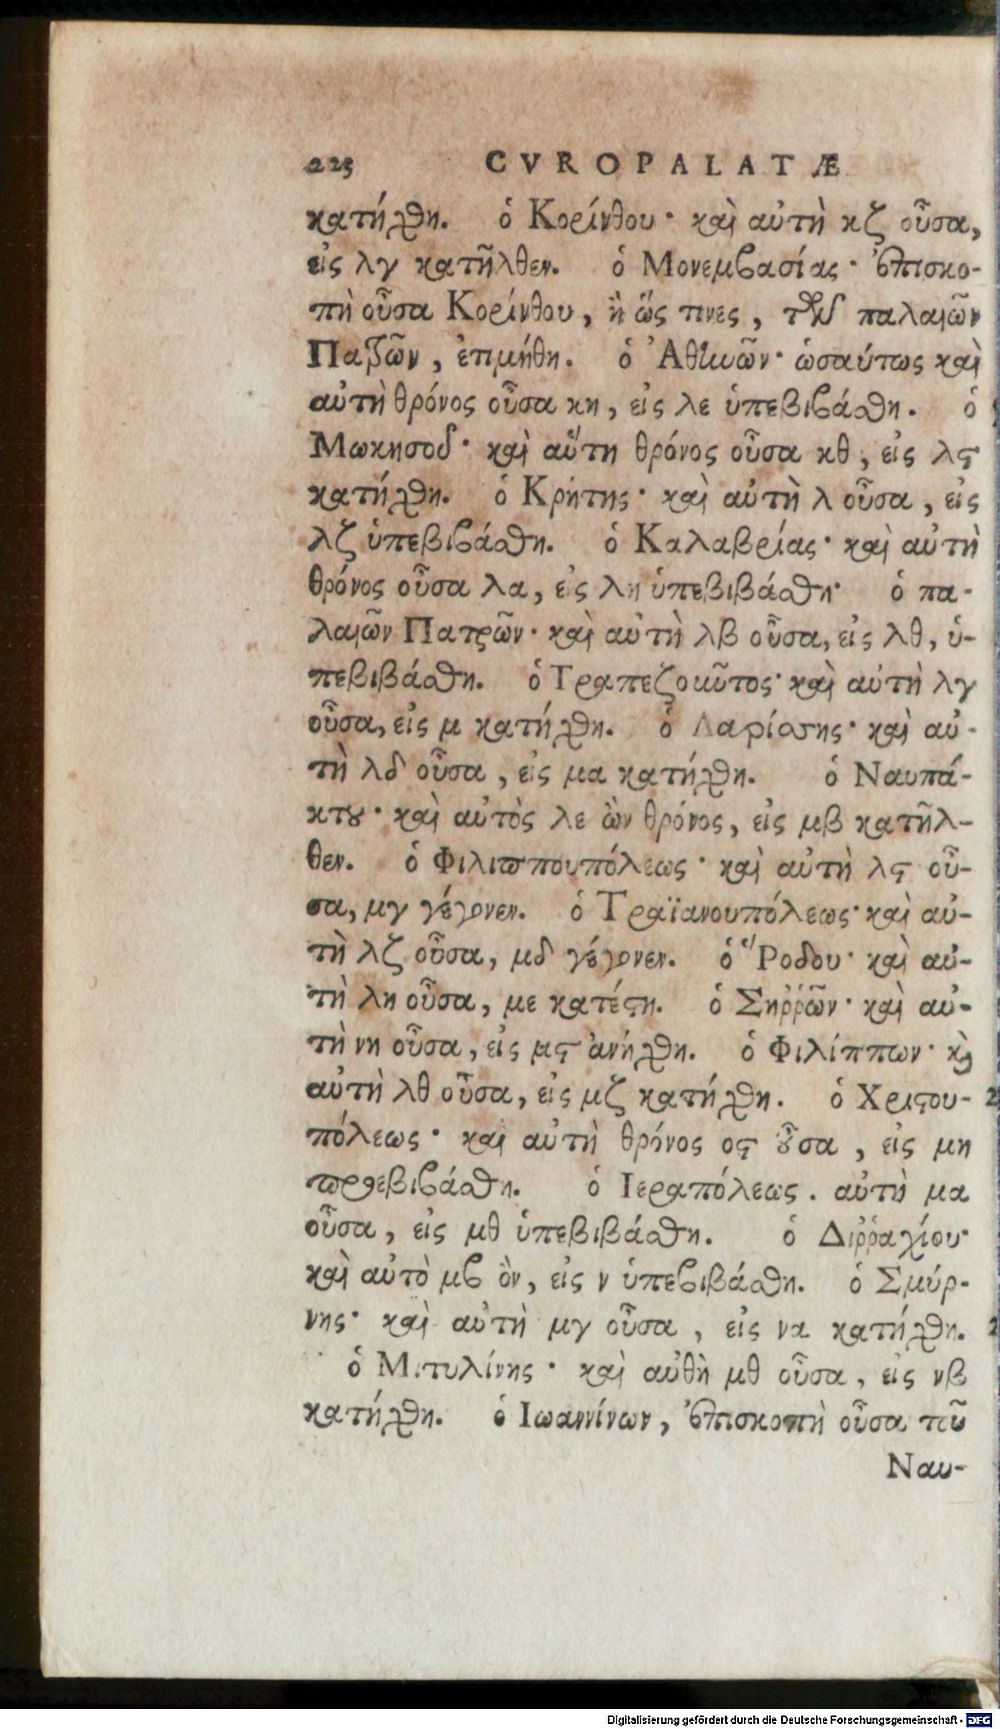 225 CVROPALATÆ
κατήχθη. ὁ Κορίνθου· καὶ αὐτὴ κζ οὖσα,
εἰς λγ κατῆλθεν. ὁ Μονεμβασίας· ἐπισκο-
πὴ οὖσα Κορίνθου, ἢ ὥς τινες, τῶν παλαιῶν
Πατρῶν, ἐτιμήθη. ὁ Ἀθηνῶν· ὡσαύτως καὶ
αὐτὴ θρόνος οὖσα κη, εἰς λε ὑπεβιβάσθη. ὁ
Μωκησοῦ· καὶ αὕτη θρόνος οὖσα κθ, εἰς λϛ
κατήχθη. ὁ Κρήτης· καὶ αὐτὴ λ οὖσα, εἰς
λζ ὑπεβιβάσθη. ὁ Καλαβρίας· καὶ αὐτὴ
θρόνος οὖσα λα, εἰς λη ὑπεβιβάσθη· ὁ πα-
λαιῶν Πατρῶν· καὶ αὐτὴ λβ οὖσα, εἰς λθ, ὑ-
πεβιβάσθη. ὁ Τραπεζοῦντος· καὶ αὐτὴ λγ
οὖσα, εἰς μ κατήχθη. ὁ Λαρίσσης· καὶ αὐ-
τὴ λδ οὖσα, εἰς μα κατήχθη. ὁ Ναυπά-
κτου· καὶ αὐτὸς λε ὢν θρόνος, εἰς μβ κατῆλ-
θεν. ὁ Φιλιππουπόλεως· καὶ αὐτὴ λϛ οὖ-
σα, μγ γέγονεν. ὁ Τραϊανουπόλεως· καὶ αὐ-
τὴ λζ οὖσα, μδ γέγονεν. ὁ Ῥόδου· καὶ αὐ-
τὴ λη οὖσα, με κατέστη. ὁ Σηῤῥῶν· καὶ αὐ-
τὴ νη οὖσα, εἰς μϛ ἀνήχθη. ὁ Φιλίππων· καὶ
αὐτὴ λθ οὖσα, εἰς μζ κατήχθη. ὁ Χριστου-
πόλεως· καὶ αὐτὴ θρόνος οϛ οὖσα, εἰς μη
προεβιβάσθη. ὁ Ιεραπόλεως. αὐτὴ μα
οὖσα, εἰς μθ ὑπεβιβάσθη. ὁ Διῤῥαχίου·
καὶ αὐτὸ μβ ὂν, εἰς ν ὑπεβιβάσθη. ὁ Σμύρ-
νης· καὶ αὐτὴ μγ οὖσα, εἰς να κατήχθη.
ὁ Μιτυλίνης· καὶ αὐθὴ μθ οὖσα, εἰς νβ
κατήχθη. ὁ Ιωαννίνων, ἐπισκοπὴ οὖσα τοῦ
Ναυ-
Digitalisierung gefördert durch die Deutsche Forschungsgemeinschaft - DFG